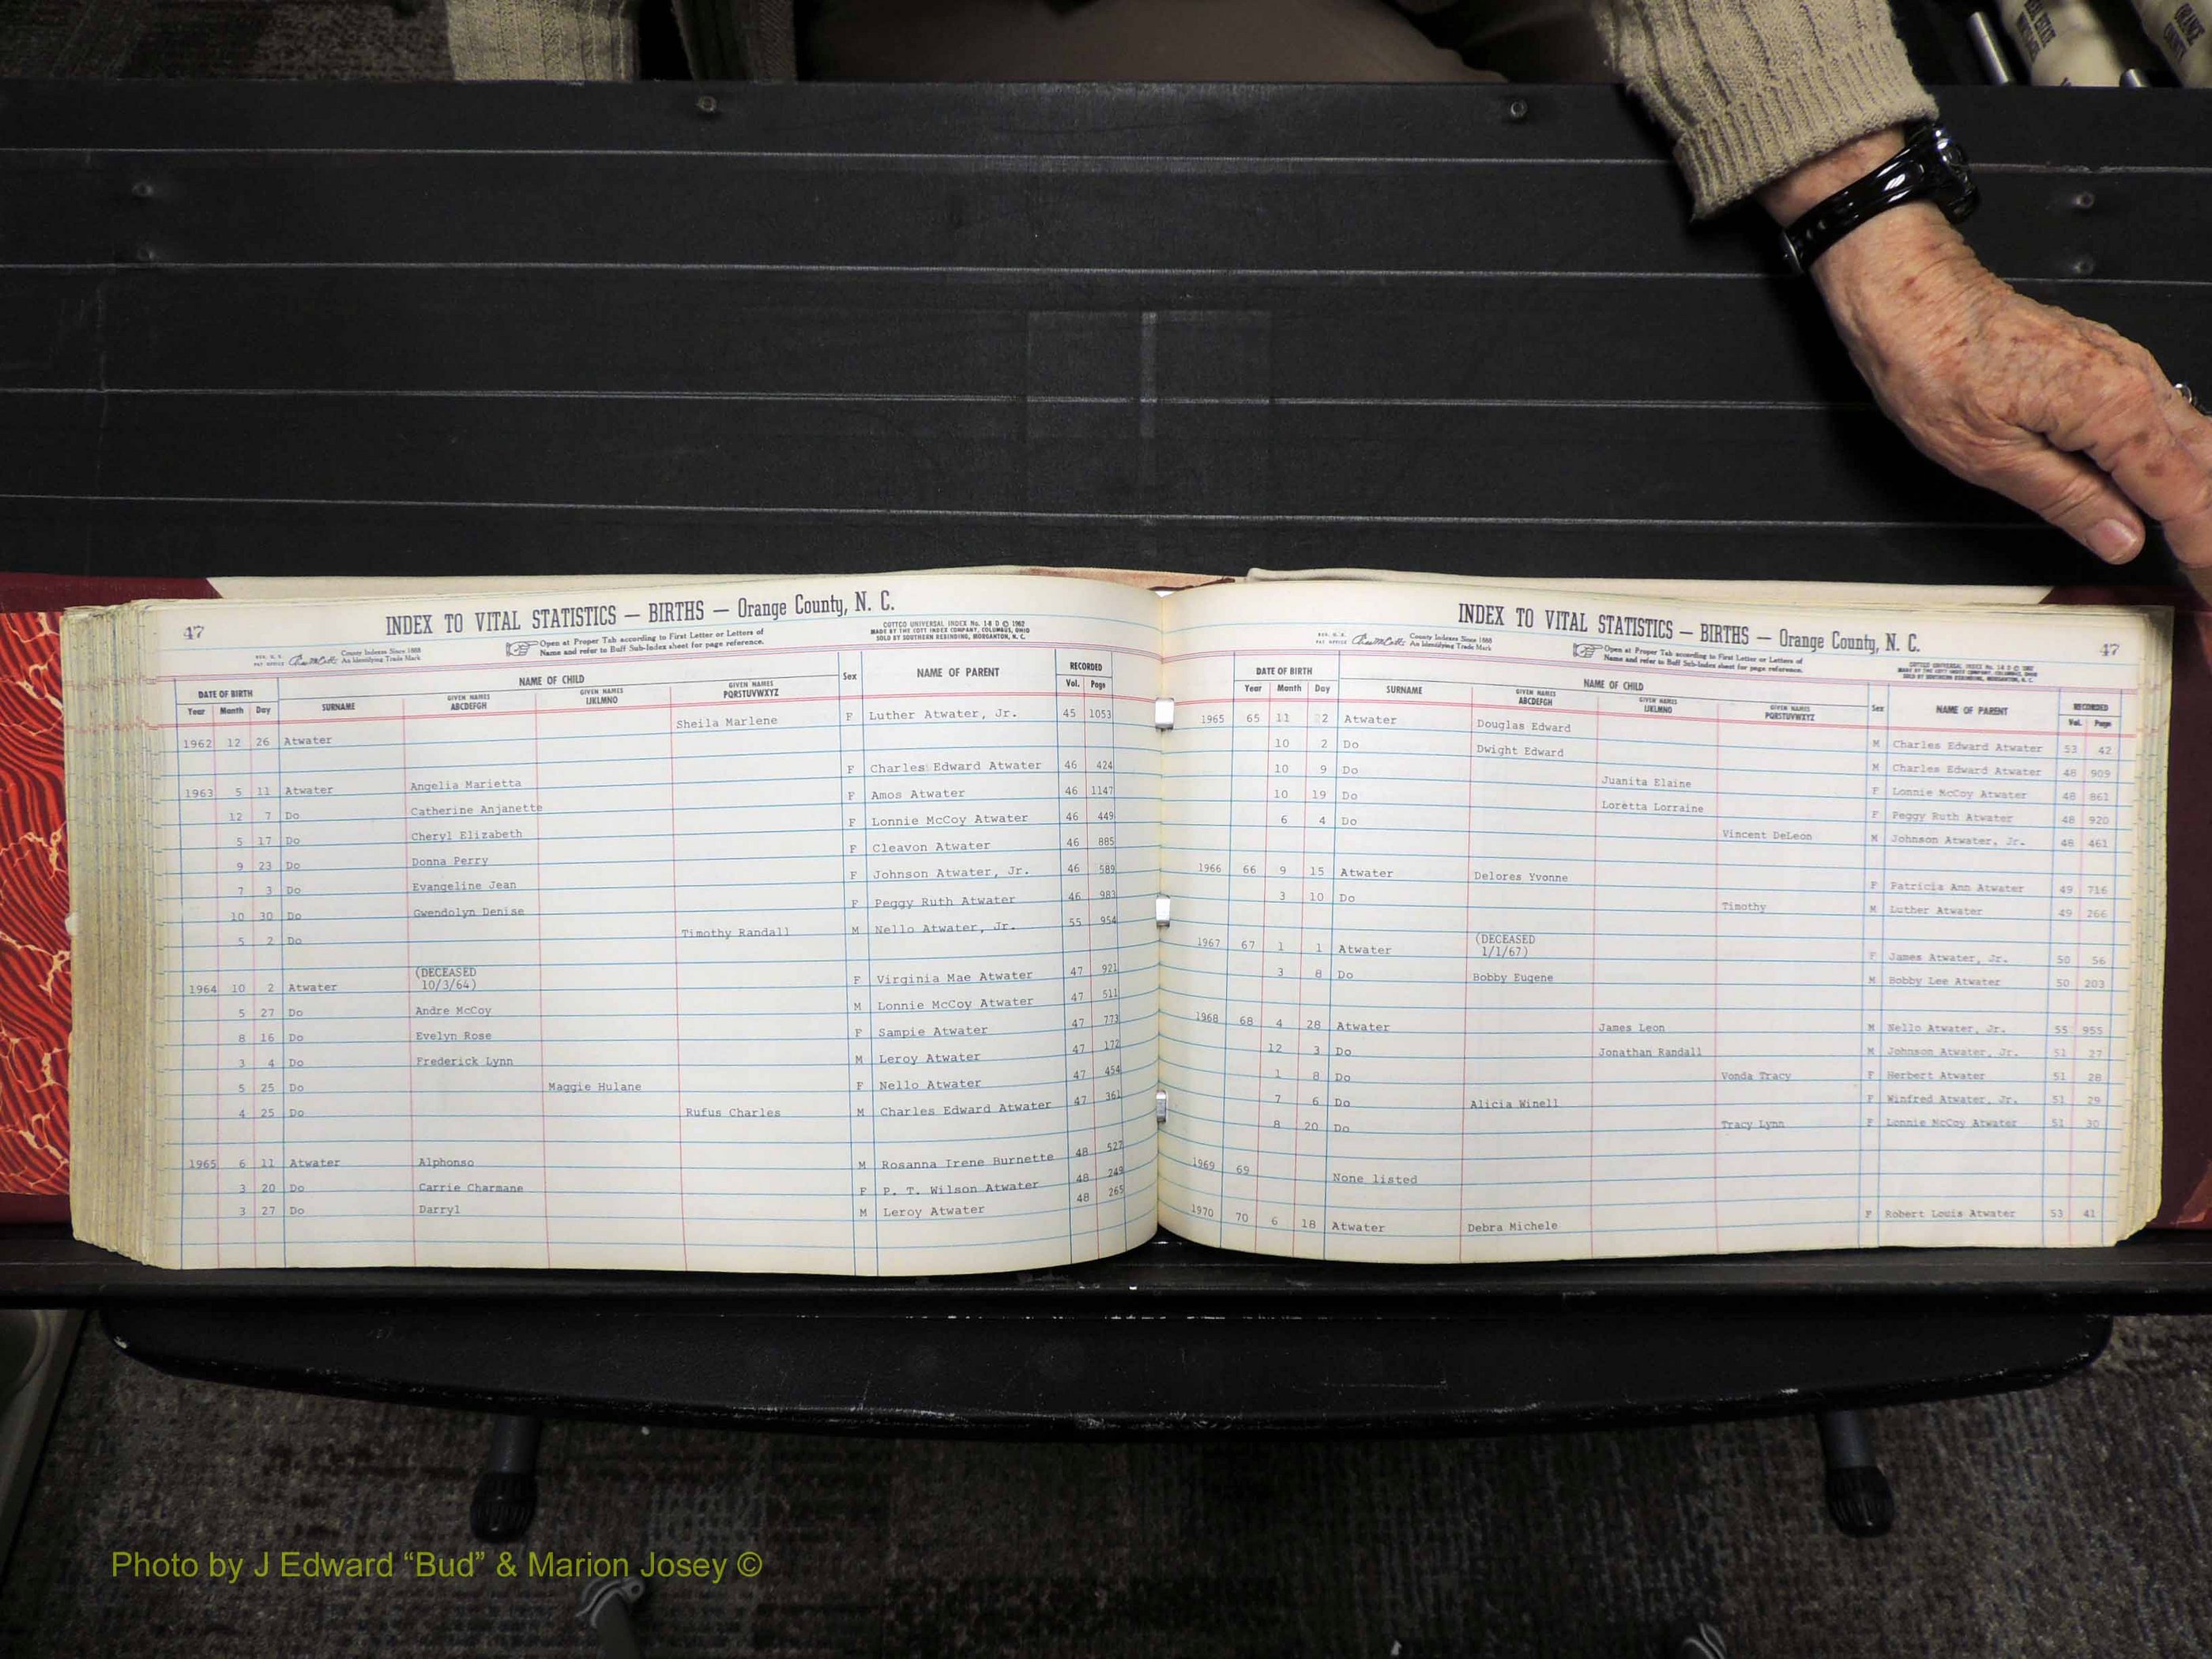 47
INDEX TO VITAL STATISTICS — BIRTHS — Orange County, N. C.
County Indexes Since 1888
An Identifying Trade Mark
Open at Proper Tab according to First Letter or Letters of
Name and refer to Buff Sub-Index sheet for page reference.
COTTCO UNIVERSAL INDEX No. 1-8 D © 1962
MADE BY THE COTT INDEX COMPANY, COLUMBUS, OHIO
SOLD BY SOUTHERN REBINDING, MORGANTON, N. C.
DATE OF BIRTH NAME OF CHILD Sex NAME OF PARENT RECORDED
Year Month Day SURNAME GIVEN NAMES ABCDEFGH GIVEN NAMES IJKLMNO GIVEN NAMES PQRSTUVWXYZ Vol. Page
1962 12 26 Atwater Sheila Marlene F Luther Atwater, Jr. 45 1053
1963 5 11 Atwater Angelia Marietta F Charles Edward Atwater 46 424
12 7 Do Catherine Anjanette F Amos Atwater 46 1147
5 17 Do Cheryl Elizabeth F Lonnie McCoy Atwater 46 449
9 23 Do Donna Perry F Cleavon Atwater 46 885
7 3 Do Evangeline Jean F Johnson Atwater, Jr. 46 589
10 30 Do Gwendolyn Denise F Peggy Ruth Atwater 46 983
5 2 Do Timothy Randall M Nello Atwater, Jr. 55 954
1964 10 2 Atwater (DECEASED 10/3/64) F Virginia Mae Atwater 47 921
5 27 Do Andre McCoy M Lonnie McCoy Atwater 47 511
8 16 Do Evelyn Rose F Sampie Atwater 47 773
3 4 Do Frederick Lynn M Leroy Atwater 47 172
5 25 Do Maggie Hulane F Nello Atwater 47 454
4 25 Do Rufus Charles M Charles Edward Atwater 47 361
1965 6 11 Atwater Alphonso M Rosanna Irene Burnette 48 527
3 20 Do Carrie Charmane F P. T. Wilson Atwater 48 249
3 27 Do Darryl M Leroy Atwater 48 265
INDEX TO VITAL STATISTICS — BIRTHS — Orange County, N. C.
47
County Indexes Since 1888
An Identifying Trade Mark
Open at Proper Tab according to First Letter or Letters of
Name and refer to Buff Sub-Index sheet for page reference.
DATE OF BIRTH NAME OF CHILD Sex NAME OF PARENT RECORDED
Year Month Day SURNAME GIVEN NAMES ABCDEFGH GIVEN NAMES IJKLMNO GIVEN NAMES PQRSTUVWXYZ Vol. Page
1965 65 11 2 Atwater Douglas Edward M Charles Edward Atwater 53 42
10 2 Do Dwight Edward M Charles Edward Atwater 48 909
10 9 Do Juanita Elaine F Lonnie McCoy Atwater 48 861
10 19 Do Loretta Lorraine F Peggy Ruth Atwater 48 920
6 4 Do Vincent DeLeon M Johnson Atwater, Jr. 48 461
1966 66 9 15 Atwater Delores Yvonne F Patricia Ann Atwater 49 716
3 10 Do Timothy M Luther Atwater 49 266
1967 67 1 1 Atwater (DECEASED 1/1/67) F James Atwater, Jr. 50 56
3 8 Do Bobby Eugene M Bobby Lee Atwater 50 203
1968 68 4 28 Atwater James Leon M Nello Atwater, Jr. 55 955
12 3 Do Jonathan Randall M Johnson Atwater, Jr. 51 27
1 8 Do Vonda Tracy F Herbert Atwater 51 28
7 6 Do Alicia Winell F Winfred Atwater, Jr. 51 29
8 20 Do Tracy Lynn F Lonnie McCoy Atwater 51 30
1969 69 None listed
1970 70 6 18 Atwater Debra Michele F Robert Louis Atwater 53 41
Photo by J Edward “Bud” & Marion Josey ©